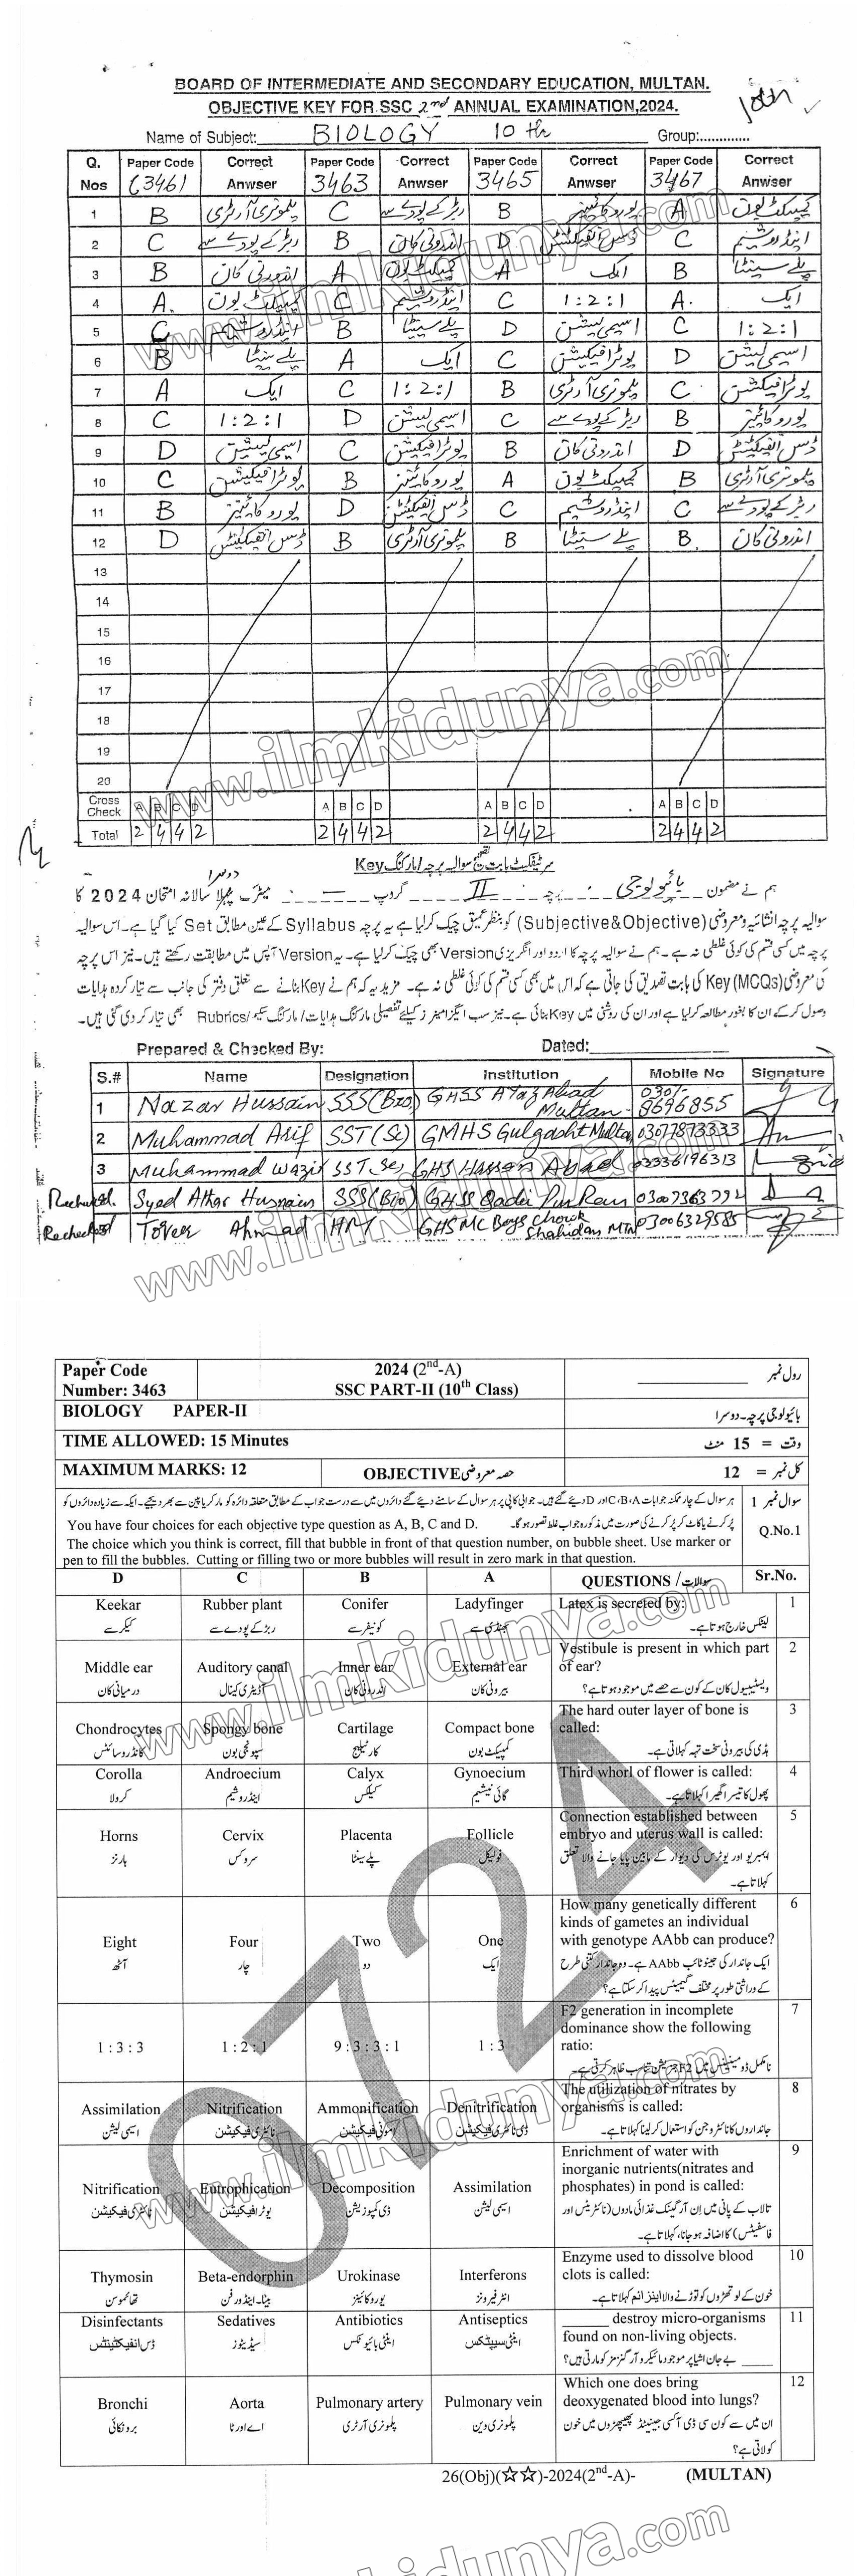 BOARD OF INTERMEDIATE AND SECONDARY EDUCATION, MULTAN.
OBJECTIVE KEY FOR SSC 2nd ANNUAL EXAMINATION,2024.
Name of Subject: BIOLOGY 10th Group:.............
Q. Nos Paper Code 3461 Correct Anwser Paper Code 3463 Correct Anwser Paper Code 3465 Correct Anwser Paper Code 3467 Correct Anwser
1 B پلمونری آرٹری C ربڑ کے پودے سے B یوروکائینیز A کمپیکٹ بون
2 C ربڑ کے پودے سے B اندرونی کان D ڈس انفیکٹینٹس C اینڈروشیم
3 B اندرونی کان A کمپیکٹ بون A ایک B پلے سینٹا
4 A. کمپیکٹ بون C اینڈروشیم C 1:2:1 A. ایک
5 C اینڈروشیم B پلے سینٹا D اسیمی لیشن C 1:2:1
6 B پلے سینٹا A ایک C یوٹرافیکیشن D اسیمی لیشن
7 A ایک C 1:2:1 B پلمونری آرٹری C یوٹرافیکیشن
8 C 1:2:1 D اسیمی لیشن C ربڑ کے پودے سے B یوروکائینیز
9 D اسیمی لیشن C یوٹرافیکیشن B اندرونی کان D ڈس انفیکٹینٹس
10 C یوٹرافیکیشن B یوروکائینیز A کمپیکٹ بون B پلمونری آرٹری
11 B یوروکائینیز D ڈس انفیکٹینٹس C اینڈروشیم C ربڑ کے پودے سے
12 D ڈس انفیکٹینٹس B پلمونری آرٹری B پلے سینٹا B. اندرونی کان
13
14
15
16
17
18
19
20
Cross Check A B C D A B C D A B C D A B C D
Total 2 4 4 2 2 4 4 2 2 4 4 2 2 4 4 2
سرٹیفکیٹ بابت تصحیح سوالیہ پرچہ / مارکنگ Key
ہم نے مضمون بائیولوجی پرچہ II گروپ میٹرک پہلا دوسرا سالانہ امتحان 2024 کا
سوالیہ پرچہ انشائیہ و معروضی (Subjective&Objective) کو بنظر عمیق چیک کرلیا ہے یہ پرچہ Syllabus کے عین مطابق Set کیا گیا ہے۔ اس سوالیہ
پرچہ میں کسی قسم کی کوئی غلطی نہ ہے۔ ہم نے سوالیہ پرچہ کا اردو اور انگریزی Version بھی چیک کرلیا ہے۔ یہ Version آپس میں مطابقت رکھتے ہیں۔ نیز اس پرچہ
کی معروضی (MCQs) Key کی بابت تصدیق کی جاتی ہے کہ اس میں بھی کسی قسم کی کوئی غلطی نہ ہے۔ مزید یہ کہ ہم نے Key بنانے سے متعلق دفتر کی جانب سے تیار کردہ ہدایات
وصول کرکے ان کا بغور مطالعہ کرلیا ہے اور ان کی روشنی میں Key بنائی ہے۔ نیز سب ایگزامینرز کیلئے تفصیلی مارکنگ ہدایات / مارکنگ سکیم / Rubrics بھی تیار کر دی گئی ہیں۔
Prepared & Checked By: Dated:
S.# Name Designation Institution Mobile No Signature
1 Nazar Hussain SSS(Bio) GHSS Ayaz Abad Multan 0301-8696855
2 Muhammad Asif SST(Sc) GMHS Gulgasht Multan 03077873333
3 Muhammad Wazir SST.Sc GHS Hassan Abad 03336196313
Recheck. Syed Athar Husnain SSS(Bio) GHSS Qadir Pur Ran 03007363792
Rechecked Ahmad HM GHS MC Boys Chowk Shahidan MTN 03006329585
Paper Code Number: 3463 2024 (2nd-A) SSC PART-II (10th Class) رول نمبر
BIOLOGY PAPER-II بائیولوجی پرچہ ۔ دوسرا
TIME ALLOWED: 15 Minutes وقت = 15 منٹ
MAXIMUM MARKS: 12 OBJECTIVE حصہ معروضی کل نمبر = 12
سوال نمبر 1 ہر سوال کے چار ممکنہ جوابات C،B،A اور D دیئے گئے ہیں۔ جوابی کاپی پر ہر سوال کے سامنے دیئے گئے دائروں میں سے درست جواب کے مطابق متعلقہ دائرہ کو مارکر یا پین سے بھر دیجیے۔ ایک سے زیادہ دائروں کو
پُر کرنے یا کاٹ کر پُر کرنے کی صورت میں مذکورہ جواب غلط تصور ہو گا۔
Q.No.1 You have four choices for each objective type question as A, B, C and D.
The choice which you think is correct, fill that bubble in front of that question number, on bubble sheet. Use marker or
pen to fill the bubbles. Cutting or filling two or more bubbles will result in zero mark in that question.
D C B A QUESTIONS / سوالات Sr.No.
Keekar Rubber plant Conifer Ladyfinger Latex is secreted by: 1
کیکر سے ربڑ کے پودے سے کونیفر سے بھنڈی سے لیٹکس خارج ہوتا ہے۔
Middle ear Auditory canal Inner ear External ear Vestibule is present in which part of ear? 2
درمیانی کان آڈیٹری کینال اندرونی کان بیرونی کان ویسٹیبیول کان کے کون سے حصے میں موجود ہوتا ہے؟
Chondrocytes Spongy bone Cartilage Compact bone The hard outer layer of bone is called: 3
کانڈروسائٹس سپونجی بون کارٹلیج کمپیکٹ بون ہڈی کی بیرونی سخت تہہ کہلاتی ہے۔
Corolla Androecium Calyx Gynoecium Third whorl of flower is called: 4
کرولا اینڈروشیم کیلکس گائی نیشیم پھول کا تیسرا گھیرا کہلاتا ہے۔
Horns Cervix Placenta Follicle Connection established between embryo and uterus wall is called: 5
ہارنز سروکس پلے سینٹا فولیکل ایمبریو اور یوٹرس کی دیوار کے مابین پایا جانے والا تعلق کہلاتا ہے۔
Eight Four Two One How many genetically different kinds of gametes an individual with genotype AAbb can produce? 6
آٹھ چار دو ایک ایک جاندار کی جینوٹائپ AAbb ہے۔ وہ جاندار کتنی طرح کے وراثتی طور پر مختلف گیمیٹس پیدا کر سکتا ہے؟
1 : 3 : 3 1 : 2 : 1 9 : 3 : 3 : 1 1 : 3 F2 generation in incomplete dominance show the following ratio: 7
نامکمل ڈومینینس میں F2 جنریشن تناسب ظاہر کرتی ہے۔
Assimilation Nitrification Ammonification Denitrification The utilization of nitrates by organisms is called: 8
اسیمی لیشن نائٹری فیکیشن امونی فیکیشن ڈی نائٹری فیکیشن جانداروں کا نائٹروجن کو استعمال کر لینا کہلاتا ہے۔
Nitrification Eutrophication Decomposition Assimilation Enrichment of water with inorganic nutrients(nitrates and phosphates) in pond is called: 9
نائٹری فیکیشن یوٹرافیکیشن ڈی کمپوزیشن اسیمی لیشن تالاب کے پانی میں اِن آرگینک غذائی مادوں (نائٹریٹس اور فاسفیٹس) کا اضافہ ہو جانا، کہلاتا ہے۔
Thymosin Beta-endorphin Urokinase Interferons Enzyme used to dissolve blood clots is called: 10
تھائموسن بیٹا۔اینڈورفن یوروکائینیز انٹرفیرونز خون کے لوتھڑوں کو توڑنے والا اینزائم کہلاتا ہے۔
Disinfectants Sedatives Antibiotics Antiseptics ______ destroy micro-organisms found on non-living objects. 11
ڈس انفیکٹینٹس سیڈیٹوز اینٹی بائیوٹکس اینٹی سیپٹکس ______ بے جان اشیا پر موجود مائیکرو آرگنزمز کو مارتی ہیں؟
Bronchi Aorta Pulmonary artery Pulmonary vein Which one does bring deoxygenated blood into lungs? 12
برونکائی اے اورٹا پلمونری آرٹری پلمونری وین ان میں سے کون سی ڈی آکسی جینیٹڈ پھیپھڑوں میں خون کو لاتی ہے؟
26(Obj)(☆☆)-2024(2nd-A)- (MULTAN)
0724
www.ilmkidunya.com
www.ilmkidunya.com
www.ilmkidunya.com
www.ilmkidunya.com
www.ilmkidunya.com
www.ilmkidunya.com